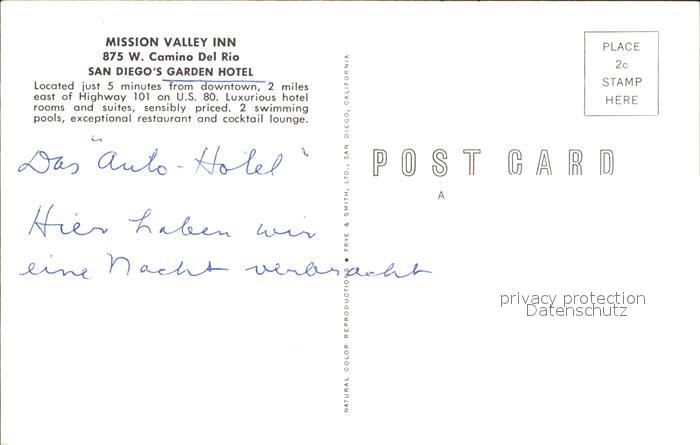 MISSION VALLEY INN
875 W. Camino Del Rio
SAN DIEGO'S GARDEN HOTEL
Located just 5 minutes from downtown, 2 miles
east of Highway 101 on U.S. 80. Luxurious hotel
rooms and suites, sensibly priced. 2 swimming
pools, exceptional restaurant and cocktail lounge.
Das "Auto-Hotel"
Hier haben wir
eine Nacht verbracht
NATURAL COLOR REPRODUCTIONS • FRYE & SMITH, LTD., SAN DIEGO, CALIFORNIA
PLACE
2c
STAMP
HERE
POST CARD
A
privacy protection
Datenschutz